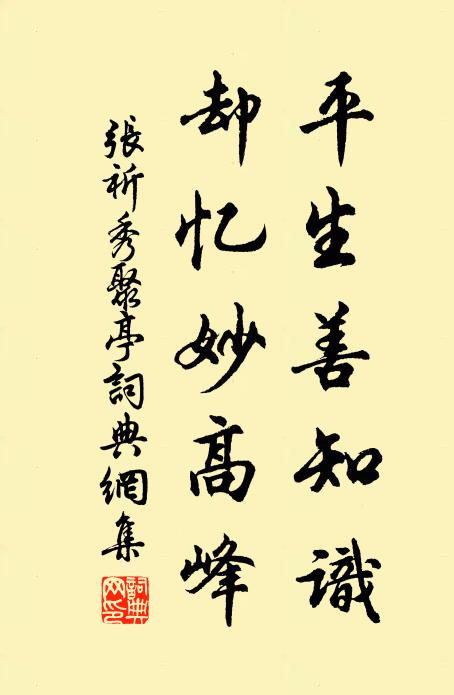 平生善知識
却忆妙高峰
張祈秀聚亭詞典網集